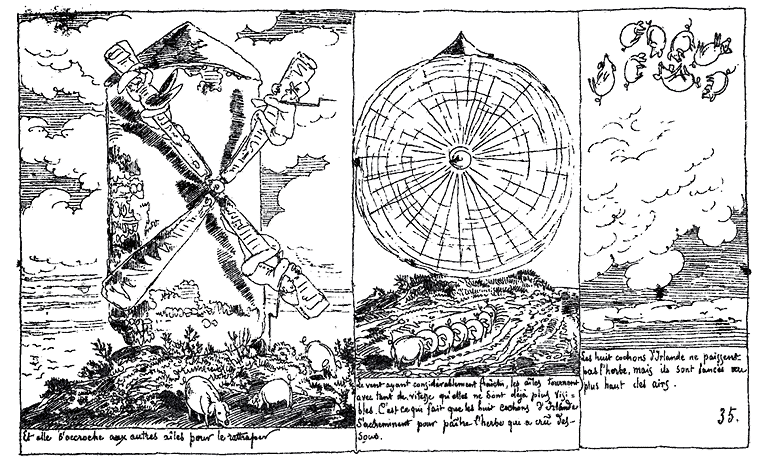 Et elle s'accroche aux autres aîles pour le rattraper
Le vent ayant considérablement fraîchi, les aîles tournent
avec tant de vitesse qu'elles ne sont déjà plus visi=
bles. C'est ce qui fait que les huit cochons d'Irlande
s'acheminent pour paître l'herbe qui a crû des-
sous.
Les huit cochons d'Irlande ne paissent
pas l'herbe, mais ils sont lancés au
plus haut des airs.
35.